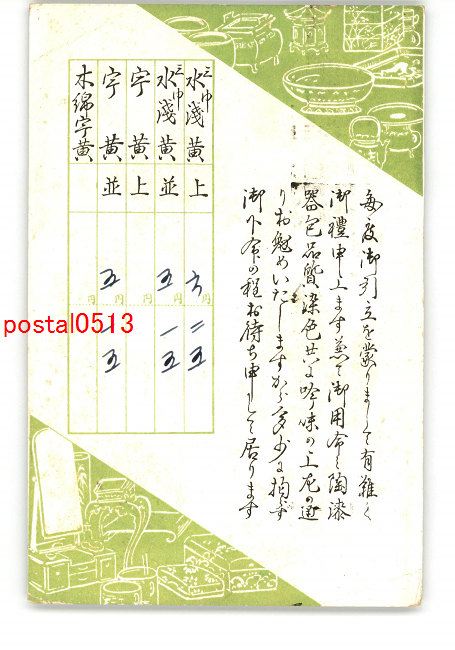 毎度御引立を蒙りまして有難く
御禮申上ます兼て御用命の陶漆
器包品質染色共に吟味の上左の通
りお勉めいたしますから多少に拘らず
御下命の程お待ち申して居ります
三巾
水淺黄 上
六円 二五
三巾
水淺黄 並
五円 一五
宇黄 上
円
宇黄 並
五円 五
木綿宇黄
円
postal0513